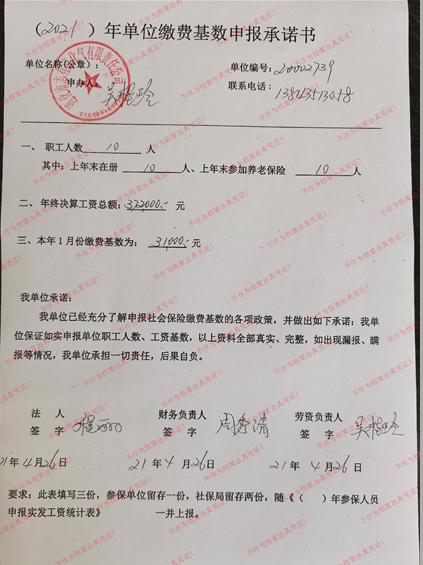 （2021）年单位缴费基数申报承诺书
单位名称(公章)：
单位编号：20002739
申办人：吴桂玲
联系电话：
一、 职工人数 10 人
其中：上年末在册 10 人、上年末参加养老保险 10 人
二、 年终决算工资总额：372000.- 元
三、本年1月份缴费基数为： 31000.- 元
我单位承诺：
我单位已经充分了解申报社会保险缴费基数的各项政策，并做出如下承诺：我单
位保证如实申报单位职工人数、工资基数，以上资料全部真实、完整，如出现漏报、瞒
报等情况，我单位承担一切责任，后果自负。
法 人
签 字
财务负责人
签 字
劳资负责人
签 字 吴桂玲
21年4月26日 21年4月26日 21年4月26日
要求：此表填写三份，参保单位留存一份，社保局留存两份，随《（ ）年参保人员
申报实发工资统计表》 一并上报。
不作为档案出具凭证!